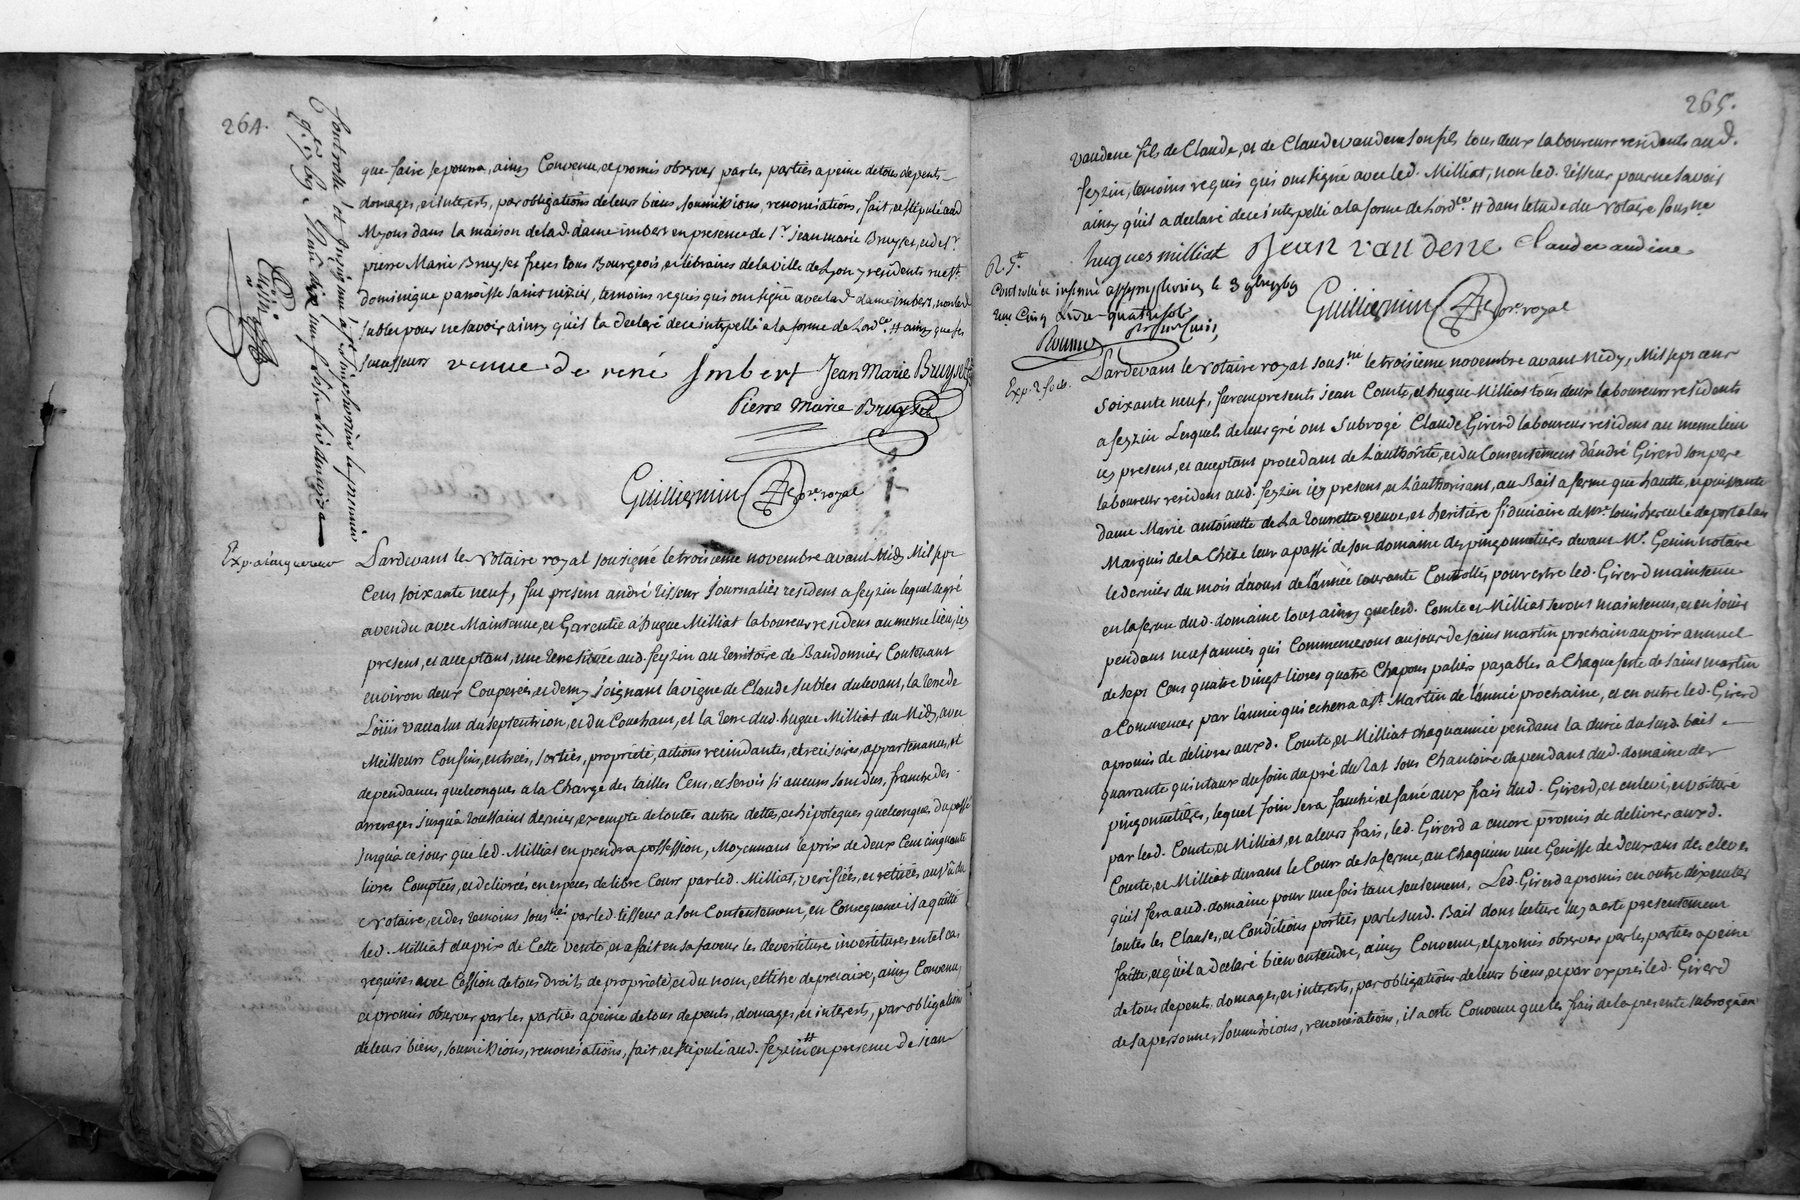 264.
que faire se pourra, ainsy Convenu, et promis observer par les parties a peine de tous depents
domages, et interests, par obligations de leurs biens, soumissions, renonciations, fait, et stipulé aud
Myons dans la maison de lad. dame imbert en presence de Sr. jean marie Bruyset, et de Sr.
pierre Marie Bruyset freres tous Bourgeois, et libraires de la ville de Lyon y residents rue St.
dominique paroisse saint nizier, temoins requis qui ont signé avec lad. dame imbert, non led
Sublet pour ne savoir ainsy qu'il la declaré de ce interpellé a la forme de Lordce. # ainsy que ses
successeurs veuve de rené Imbert Jean Marie Bruyset
Pierre Marie Bruyset
Guilliermin nore. royal
Exp. a l'acquereur
Pardevant le Notaire royal sousigné le troisieme novembre avant Midy Mil sept
Cent soixante neuf, fut present andré Tisseur Journalier resident a feyzin lequel de gré
a vendu avec Maintenue, et Garentie a hugue Milliat laboureur resident au meme lieu, icy
present, et acceptant, une terre située aud. feyzin au territoire de Bandonnier Contenant
environ deux Couperées, et demy joignant la vigne de Claude Sublet du levant, la terre de
Loüis vaualut du septentrion, et du Couchant, et la terre dud. hugue Milliat du Midy, avec
Meilleurs Confins, entrées, sorties, proprieté, actions recindantes, et recisoires, appartenances, et
dependances quelconques a la Charge des tailles Cens, et servis si aucuns sont dus, franche des
arrerages jusqu'a toussaint dernier, exempte de toutes autres dettes, et hipoteques quelconques du passé
jusqu'a ce jour que led. Milliat en prendra possession, Moyennant le prix de deux Cent cinquante
livres Comptées, et delivrées en especes de libre Cours par led. Milliat, verifiées, et retirées au vû du
Notaire, et des temoins sousnés par led. tisseur a son Contentement, en Consequence il a quitté
led. Milliat du prix de Cette vente, et a fait en sa faveur les devestiture investitures en tel cas
requises avec Cession de tous droits de proprieté, et du nom, et titre de precaire, ainsy Convenu,
et promis observer par les parties a peine de tous depents, domages, et interests, par obligation
de leurs biens, soumissions, renonciations, fait, et stipulé aud. feyzin # en presence de jean
265.
vaudene fils de Claude, et de Claude vaudene son fils tous deux laboureurs residents aud.
feyzin, temoins requis qui ont signé avec led. Milliat, non led. Tisseur pour ne savoir
ainsy qu'il a declaré de ce interpellé a la forme de Lordce. # dans letude du Notaire sousne
hugues milliat Jean vaudene Claude vaudene
Guilliermin nore. royal
Controllé et insinué le 3 9bre 1769
Cinq Livre quatre sols
Exp. 2 fois.
Pardevant le Notaire royal sousne le troisieme novembre avant Midy, Mil sept cent
soixante neuf, furent presents jean Comte, et hugue Milliat tous deux laboureurs residents
a feyzin Lesquels de leur gré ont Subrogé Claude Girerd laboureur resident au meme lieu
icy present, et acceptant procedant de L'authorité, et du Consentement d'andré Girerd son pere
laboureur resident aud. feyzin icy present, et L'authorisant, au Bail a ferme que haute, et puissante
dame Marie antoinette de La tourrette veuve, et heritiere fiduciaire de Mre louis hercule de portalais
Marquis de la Chéze leur a passé de son domaine des pinçonnetieres devant Me. Genin notaire
le dernier du mois d'aoust de l'année courante Controllé, pour estre led. Girerd maintenu
en la ferme dud. domaine tout ainsy que lesd. Comte et Milliat seront maintenus, et en jouir
pendant neuf années qui Commenceront au jour de saint martin prochain au prix annuel
de sept Cent quatre vingt livres quatre Chapons paliers payables a Chaque feste de saint Martin
a Commencer par l'année qui echerra a St. Martin de l'année prochaine, et en outre led. Girerd
a promis de delivrer auxd. Comte, et Milliat chaque année pendant la durée du surd. bail
quarante quintaux du foin du pré du Rat sous Chantoire dependant dud. domaine des
pinçonnetieres, lequel foin sera fauché, et fané aux frais dud. Girerd, et enlevé, et voituré
par lesd. Comte, et Milliat, et a leurs frais, led. Girerd a encore promis de delivrer auxd.
Comte, et Milliat durant le Cours de sa ferme, au chaqu'un une Genisse de deux ans des eleves
qu'il fera aud. domaine pour une fois tant seulement, Led. Girerd a promis en outre d'executer
toutes les Clauses, et Conditions portées par le surd. Bail dont lecture luy a esté presentement
faitte, et qu'il a declaré bien entendre, ainsy Convenu, et promis observer par les parties a peine
de tous depents, domages, et interests, par obligations de leurs biens, et par exprès led. Girerd
de sa personne, soumissions, renonciations, il a esté Convenu que les frais de la presente subrogaon